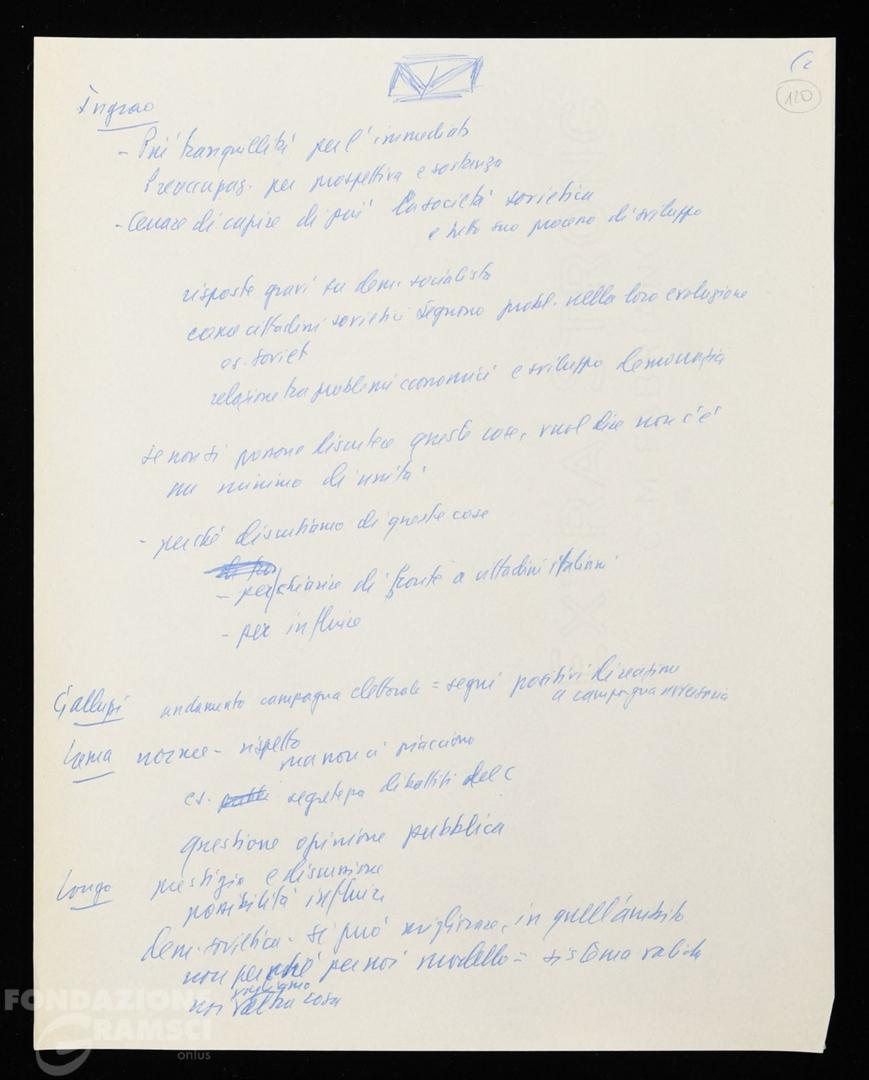 120
Ingrao
- Più tranquillità per l'immediato
Preoccupaz. per prospettiva e sostanza
- Cercare di capire di più la società sovietica
e tutto suo processo di sviluppo
risposte gravi su dem. socialista
come cittadini sovietici seguono probl. nella loro evoluzione
es. soviet
relazione tra problemi economici e sviluppo democrazia
se non si possono discutere queste cose, vuol dire non c'è
un minimo di unità
- perché discutiamo di queste cose
- per chiarire di fronte a cittadini italiani
- per influire
Galluzzi andamento campagna elettorale = segni positivi di reazione
a campagna avversaria
Lama norme - rispetto
ma non ci piacciono
es. segretezza dibattiti del C
questione opinione pubblica
Longo prestigio e discussione
possibilità influire
dem. sovietica - si può migliorare, in quell'ambito
non perché per noi modello = sistema valido
noi vogliamo altra cosa
FONDAZIONE
GRAMSCI
onlus